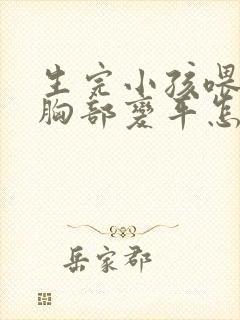 生完小孩喂
胸部变平怎
岳家郡